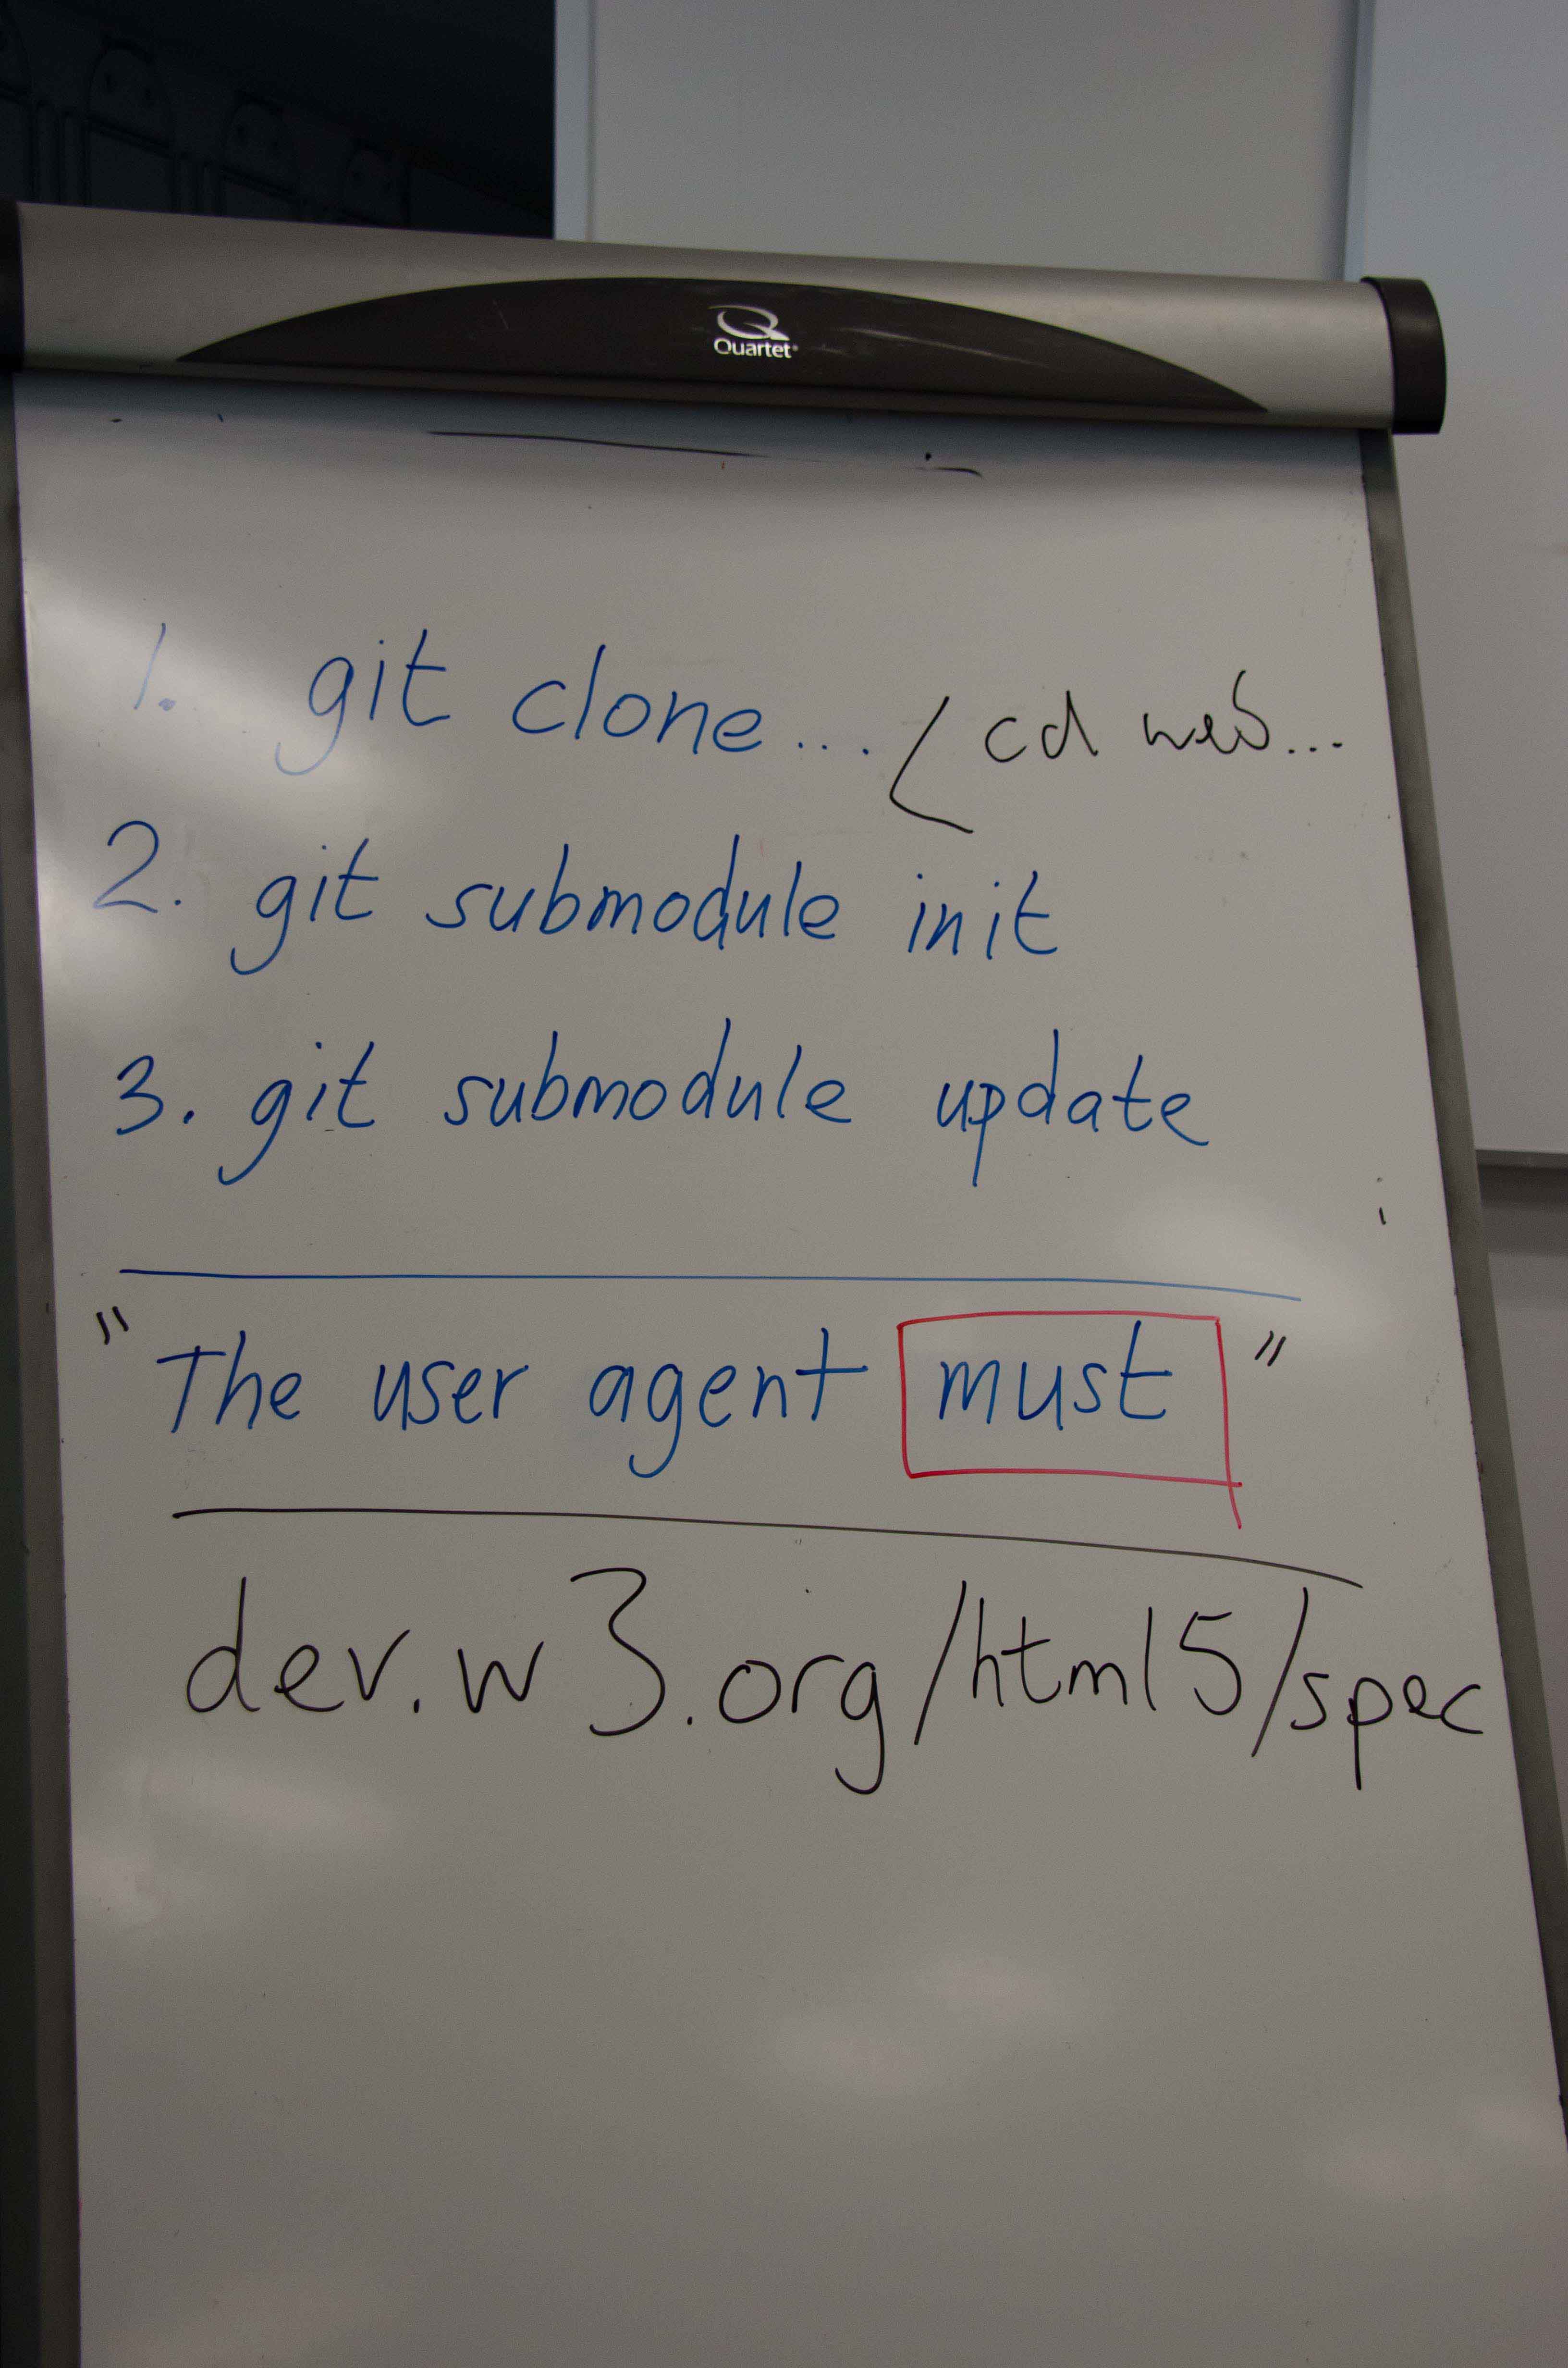 Quartet
1. git clone... cd web...
2. git submodule init
3. git submodule update
"The user agent must"
dev.w3.org/html5/spec